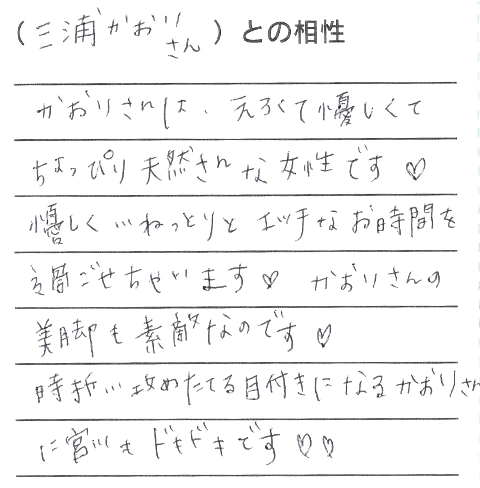 （三浦かおりさん）との相性
かおりさんは、えろくて優しくて
ちょっぴり天然さんな女性です♡
優しくねっとりとエッチなお時間を
過ごせちゃいます♡ かおりさんの
美脚も素敵なのです♡
時折い攻めたてる目付きになるかおりさん
に宮川もドキドキです♡♡